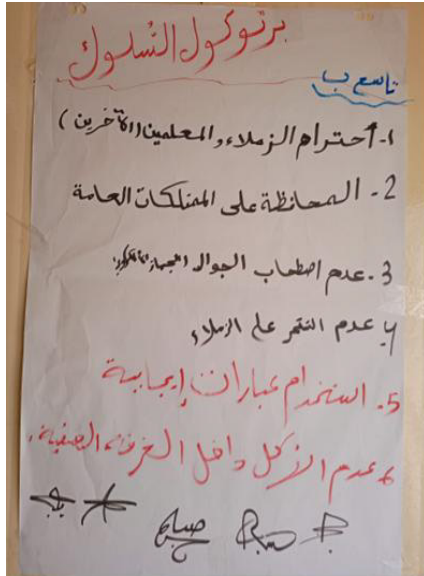 برتوكول السلوك
تاسع ب
1- احترام الزملاء والمعلمين (الآخرين)
2- المحافظة على الممتلكات العامة
3- عدم اصطحاب الجوال
4- عدم التنمر على الزملاء
5- استخدام عبارات إيجابية
6- عدم الأكل داخل الغرفة الصفية.